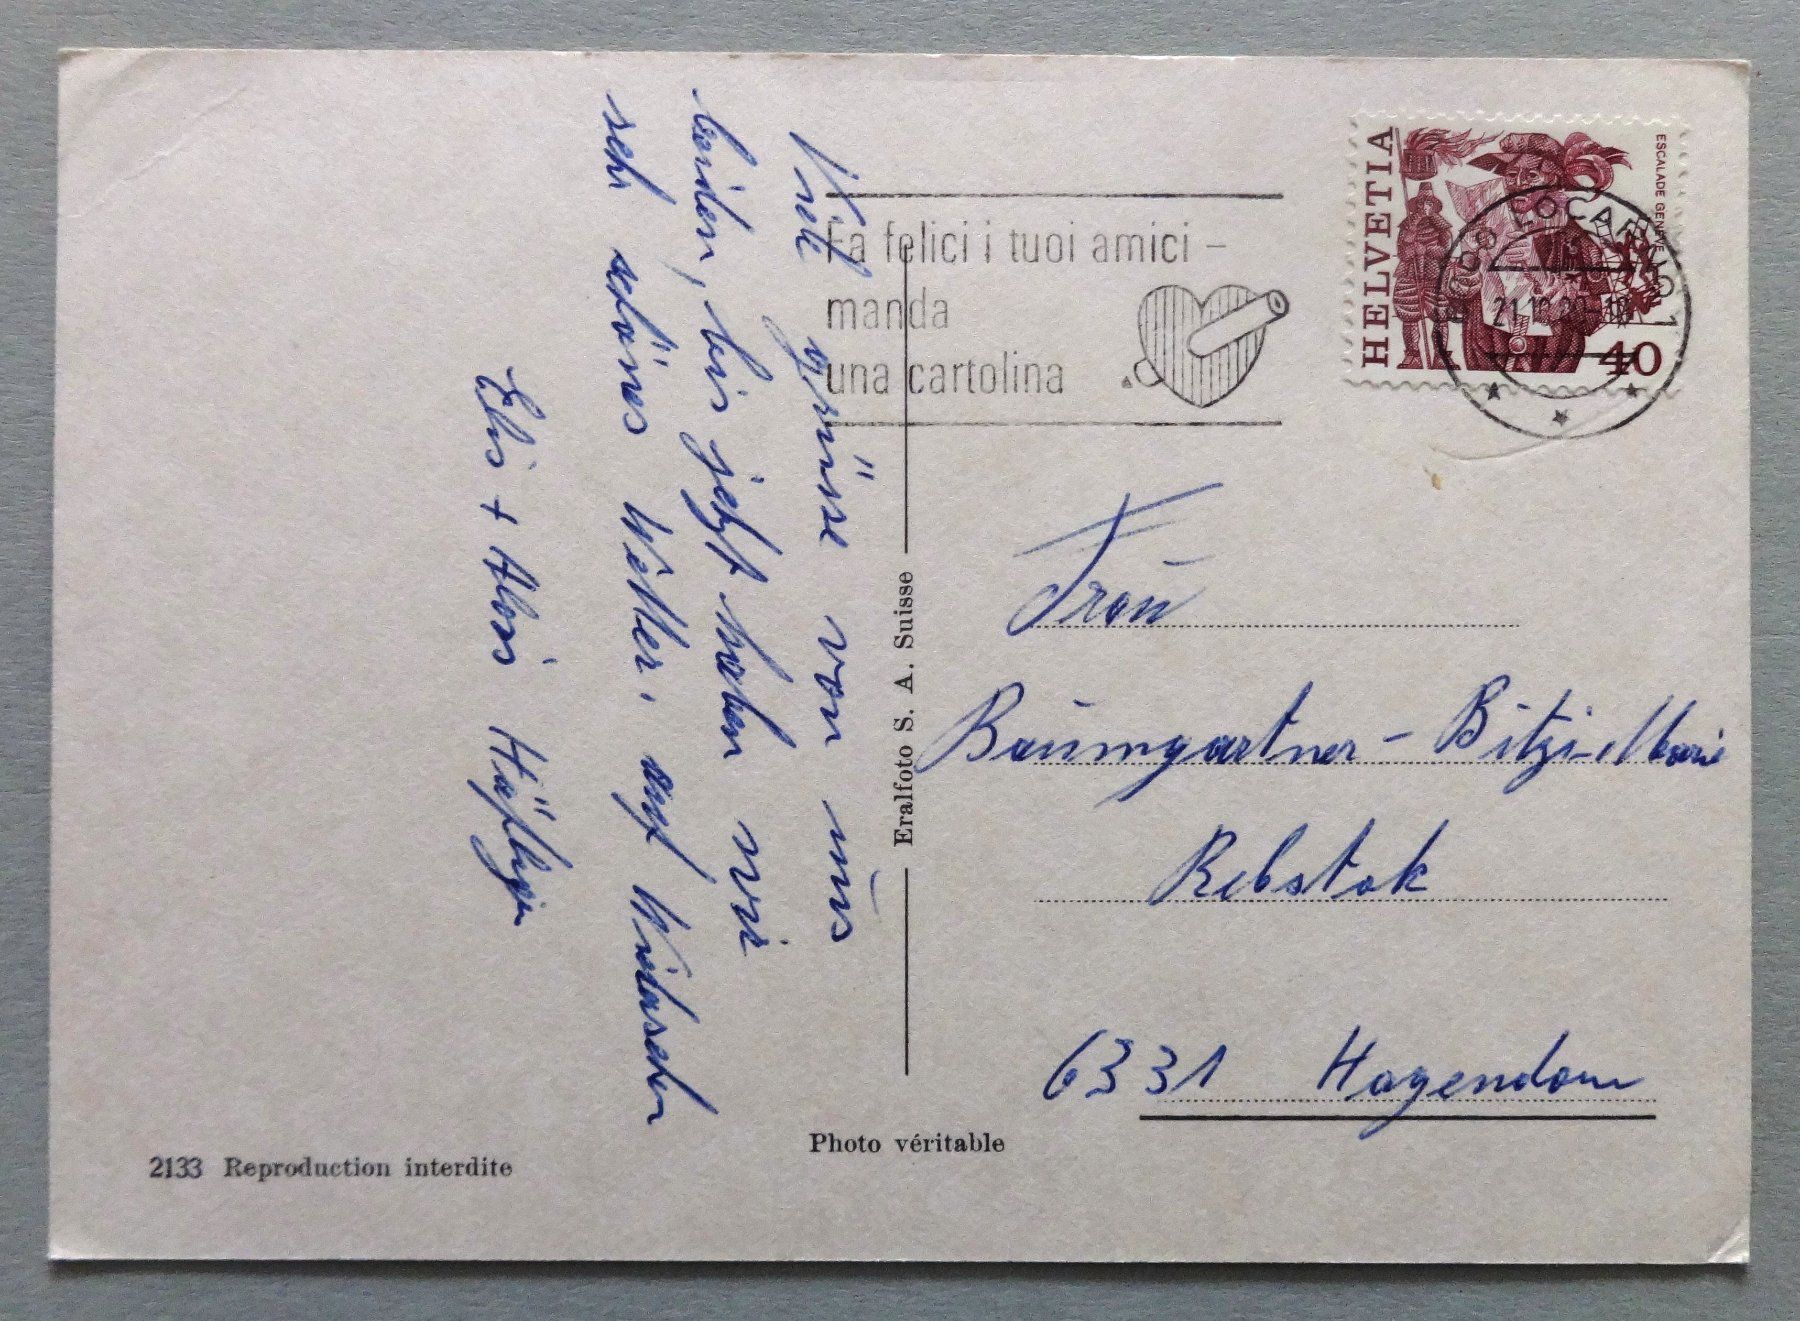 Viele grüsse von uns
beiden, bis jetzt haben wir
sehr schönes Wetter, auf Widersehen
Elis + Alois Häfliger
Fa felici i tuoi amici –
manda
una cartolina
HELVETIA
ESCALADE GENÈVE
40
LOCARNO 1
Fraū
Baūmgartner - Bitzi-Marie
Rebstok
6331 Hagendorn
Eralfoto S. A. Suisse
Photo véritable
2133 Reproduction interdite